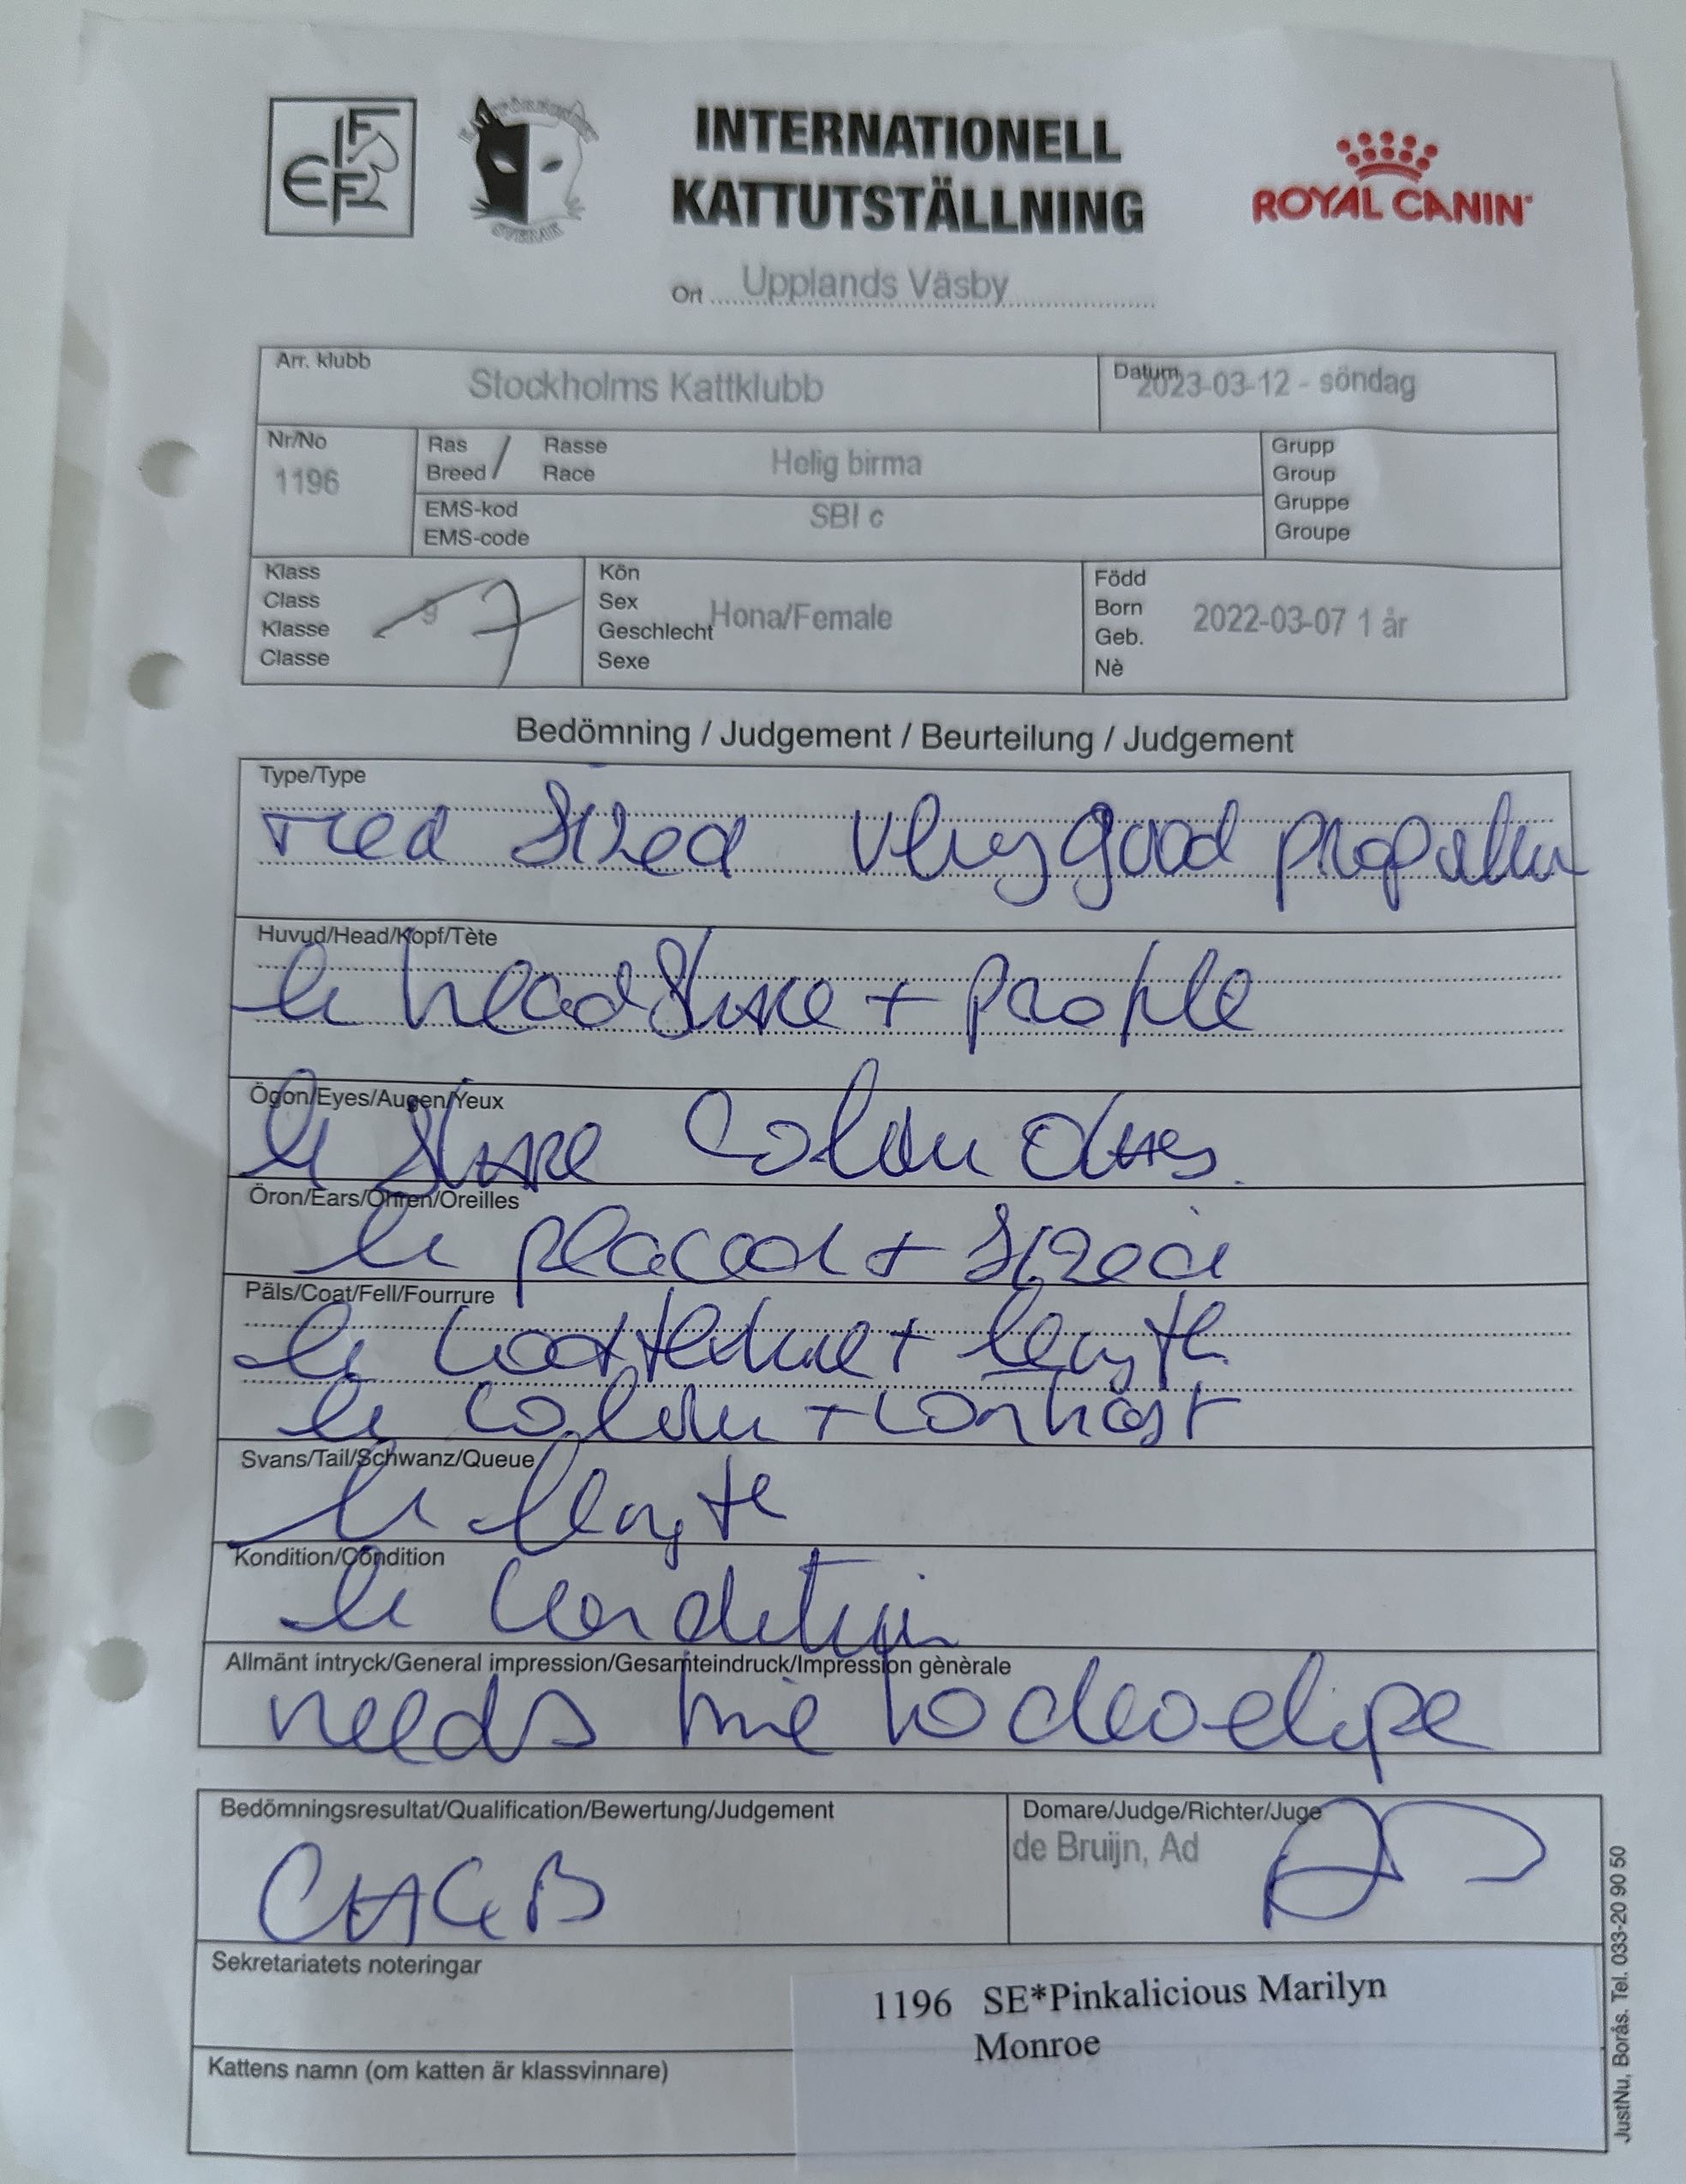 FIFe
SVERAK
INTERNATIONELL
KATTUTSTÄLLNING
ROYAL CANIN
Ort Upplands Väsby
Arr. klubb
Stockholms Kattklubb
Datum
2023-03-12 - söndag
Nr/No
1196
Ras / Rasse
Breed / Race
Helig birma
EMS-kod
EMS-code
SBI c
Grupp
Group
Gruppe
Groupe
Klass
Class
Klasse
Classe
9 7
Kön
Sex
Geschlecht
Sexe
Hona/Female
Född
Born
Geb.
Nè
2022-03-07 1 år
Bedömning / Judgement / Beurteilung / Judgement
Type/Type
med sized very good
Huvud/Head/Kopf/Tète
head + profile
Ögon/Eyes/Augen/Yeux
colour
Öron/Ears/Ohren/Oreilles
placed + sized
Päls/Coat/Fell/Fourrure
coat texture + length
colour + contrast
Svans/Tail/Schwanz/Queue
length
Kondition/Condition
condition
Allmänt intryck/General impression/Gesamteindruck/Impression gènèrale
needs time to develope
Bedömningsresultat/Qualification/Bewertung/Judgement
Domare/Judge/Richter/Juge
de Bruijn, Ad
Sekretariatets noteringar
1196 SE*Pinkalicious Marilyn
Monroe
Kattens namn (om katten är klassvinnare)
JustNu, Borås. Tel. 033-20 90 50